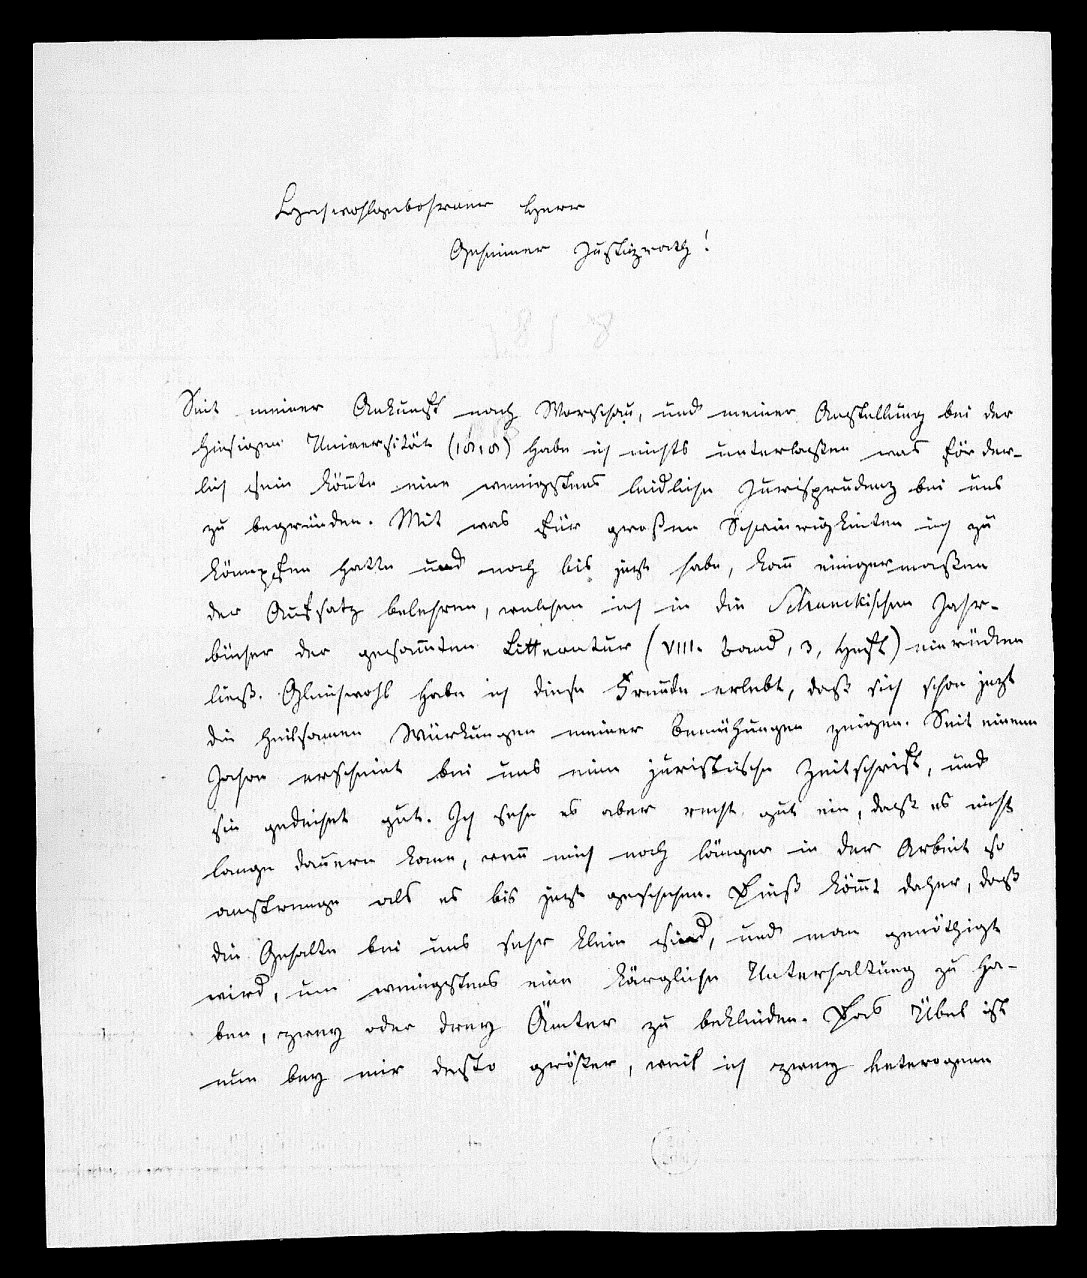 Hochwohlgebohrner Herr
Geheimer Justizrath!
Seit meiner Ankunft nach Warschau, und meiner Anstellung bei der
hiesigen Universität (1818) habe ich nichts unterlaßen was förder-
lich sein könnte eine wenigstens leidliche Jurisprudenz bei uns
zu begründen. Mit was für großen Schwierigkeiten ich zu
kämpfen hatte und noch bis jezt habe, kann einigermaßen
der Aufsatz belehren, welchen ich in die Schunckischen Jahr-
bücher der gesam̄ten Litteratur (VIII. Band, 3, Heft) einrücken
ließ. Gleichwohl habe ich diese Freude erlebt, daß sich schon jezt
die heilsamen Würkungen meiner Bemühungen zeigen. Seit einem
Jahre erscheint bei uns eine juristische Zeitschrift, und
sie gedeihet gut. Ich sehe es aber recht gut ein, daß es nicht
lange dauern kann, wen̄ mich noch länger in der Arbeit so
anstrenge als es bis jezt geschehen. Dieß köm̄t daher, daß
die Gehalte bei uns sehr klein sind, und man genöthigt
wird, um wenigstens eine kärgliche Unterhaltung zu ha-
ben, zwey oder drey Ämter zu bekleiden. Das Übel ist
nun bey mir desto größer, weil ich zwey heterogene